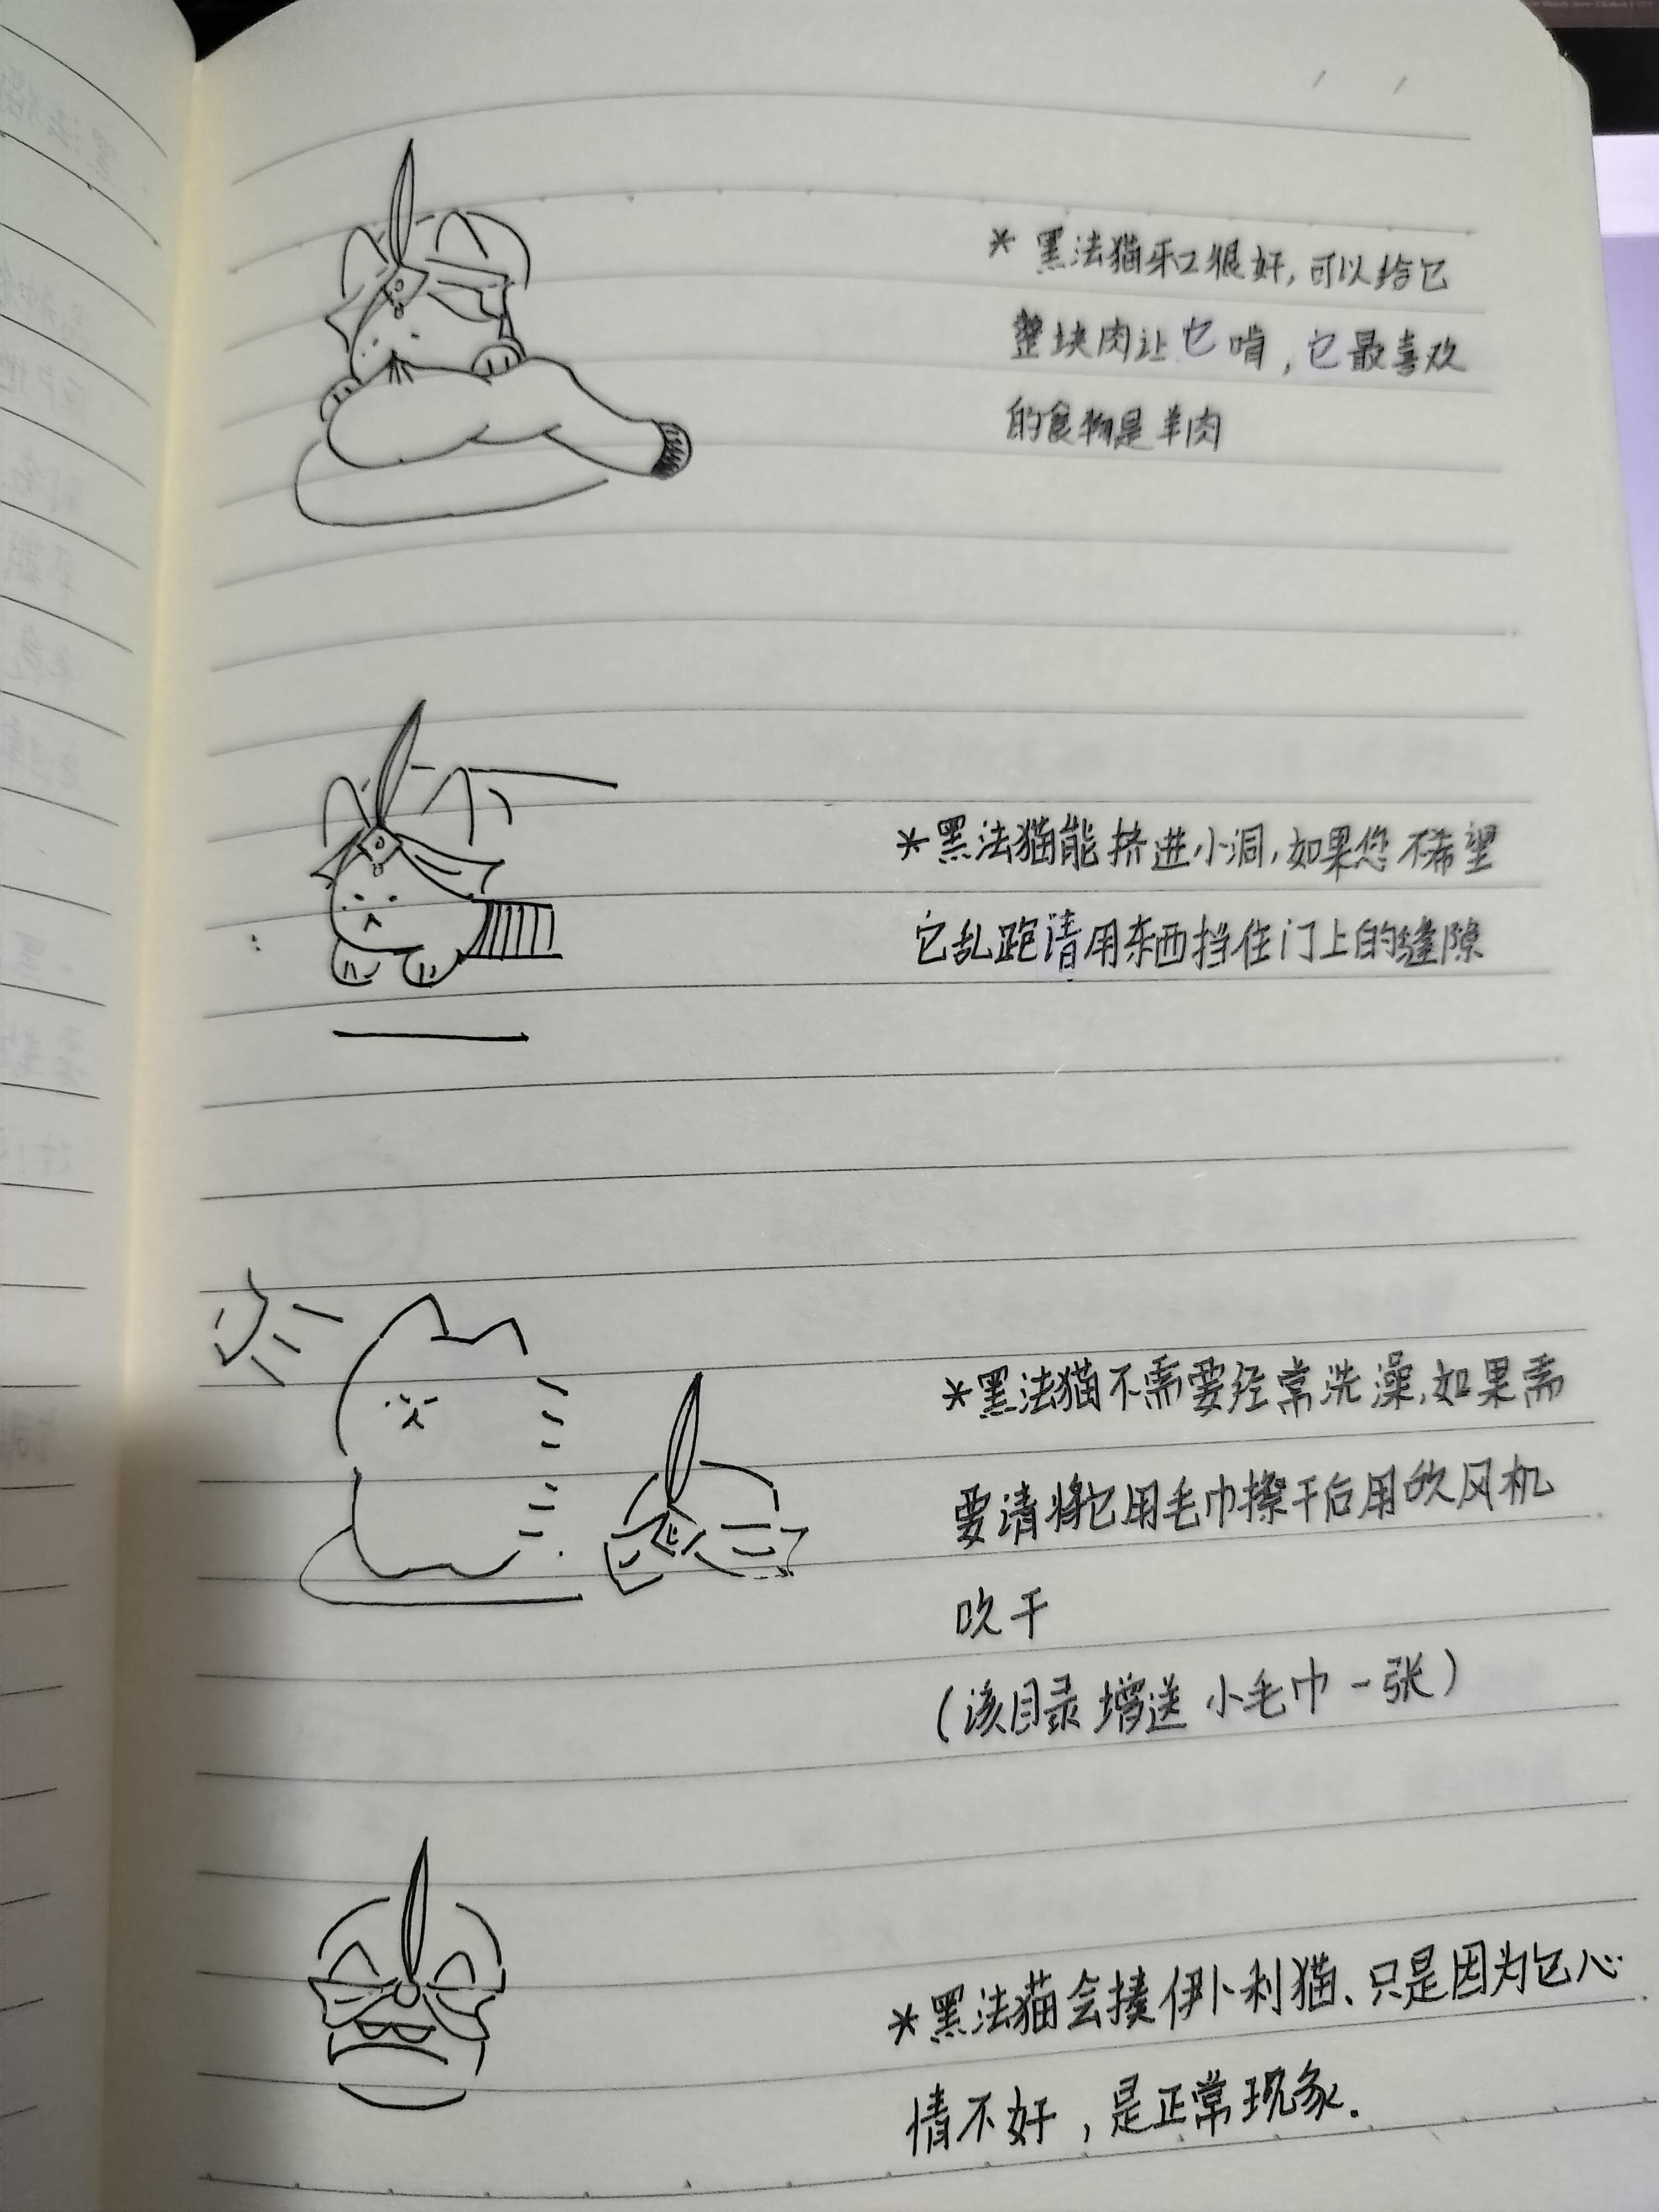 * 黑法猫牙口很好,可以给它
整块肉让它啃,它最喜欢
的食物是羊肉
*黑法猫能挤进小洞,如果您不希望
它乱跑请用东西挡住门上的缝隙
*黑法猫不需要经常洗澡,如果需
要请将它用毛巾擦干后用吹风机
吹干
(该目录增送小毛巾一张)
*黑法猫会揍伊卜利猫、只是因为它心
情不好,是正常现象.